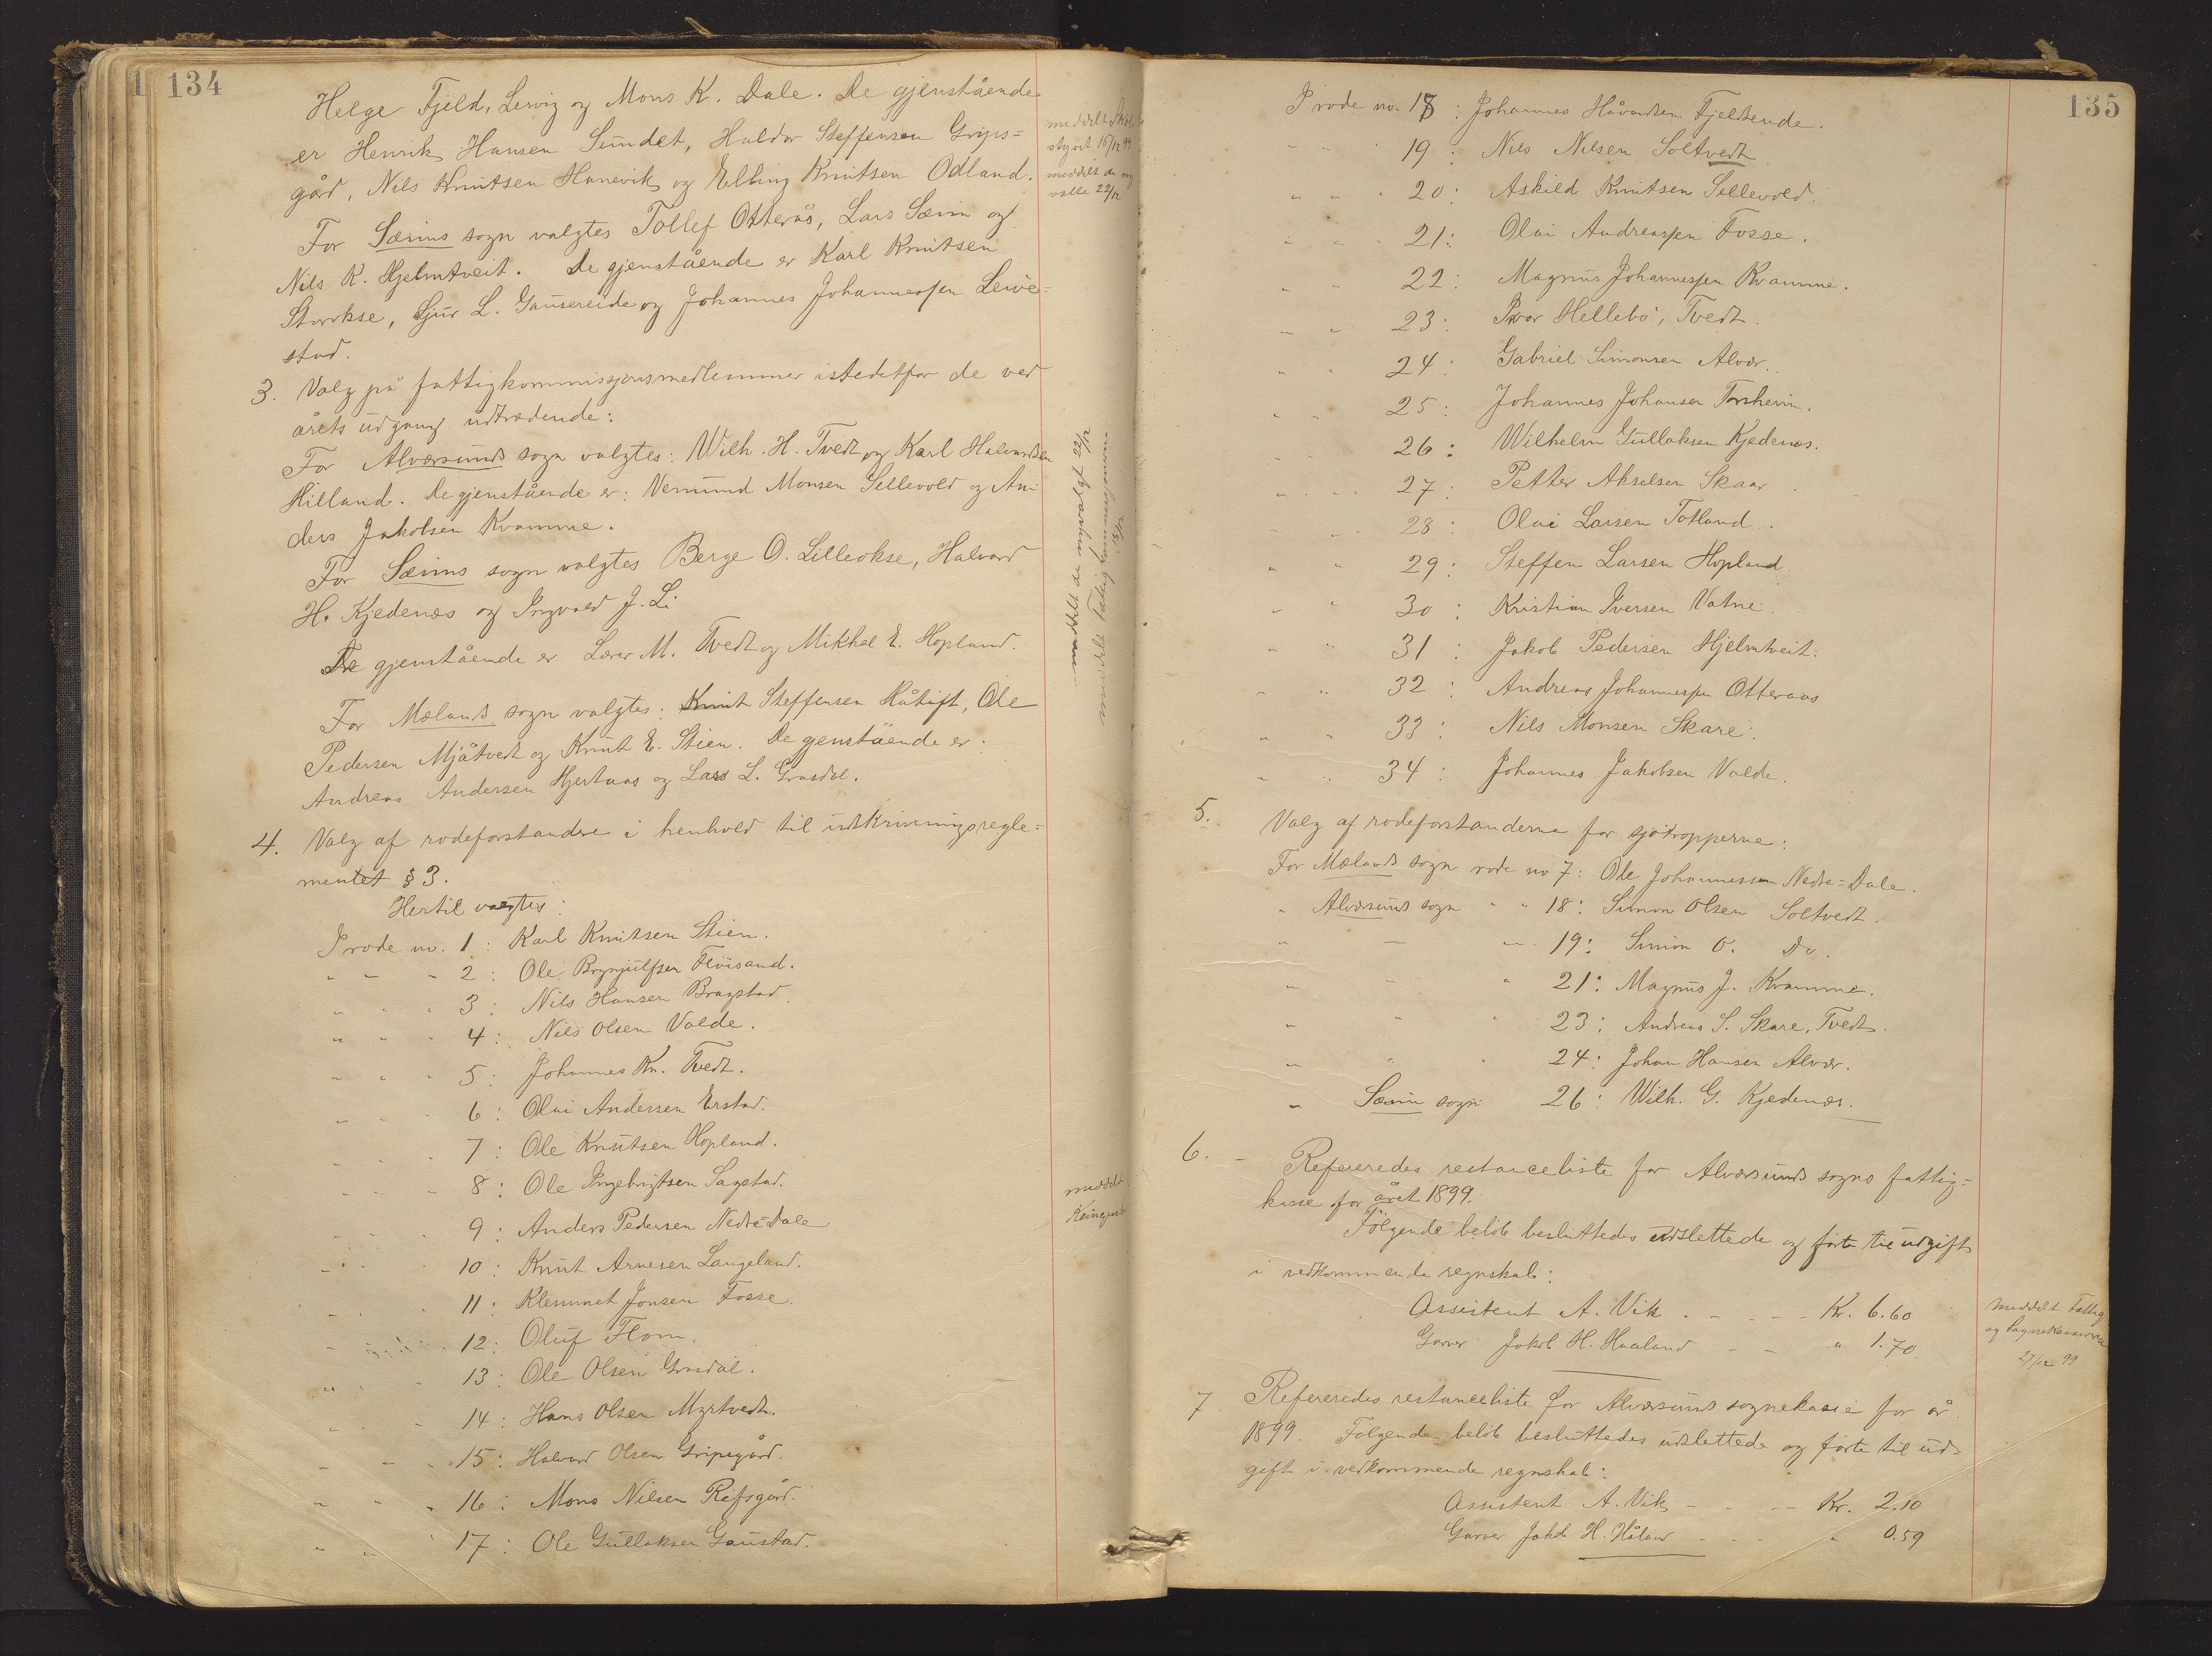 134
Helge Fjeld, Lervig og Mons K. Dale. De gjenstående
er Henrik Hansen Sundet, Haldor Steffensen Grips=
gård, Nils Knutsen Hanevik og Elling Knutsen Odland.
For Sæims sogn valgtes Tollef Otterås, Lars Sæim og
Nils K. Hjelmtveit. De gjenstående er Karl Knutsen
Storokse, Sjur L. Gausereide og Johannes Johannessen Leive=
stad.
meddelt Skole
styret 15/12 99
meddelt de ny
valte 22/12
3. Valg på fattigkommissjonsmedlemmer istedetfor de ved
årets udgang udtrædende:
For Alværsunds sogn valgtes: Wilh. H. Tvedt og Karl Halvardsen
Hilland. De gjenstående er: Vemund Monsen Sellevold og An-
ders Jakobsen Kvamme.
For Sæims sogn valgtes Berge O. Lilleokse, Halvard
H. Kjedenæs og Ingvald J. Li
De gjenstående er Lærer M. Tvedt og Mikkel E. Hopland.
For Mælands sogn valgtes: Knut Steffensen Håtuft, Ole
Pedersen Mjåtvedt og Knut E. Stien. De gjenstående er:
Andreas Andersen Hjertaas og Lars L. Grasdal.
meddelt de nyvalgt 22/12
meddelt Fattigkommissjonerne 15/12
4. Valg af rodeforstandre i henhold til udskrivningsregle=
mentet § 3.
Hertil valgtes:
I rode no. 1: Karl Knutsen Stien.
" " " 2: Ole Brynjulfsen Fløisand.
" " " 3: Nils Hansen Bragstad.
" " " 4: Nils Olsen Valde.
" " " 5: Johannes Kn. Tvedt.
" " " 6: Olai Andersen Erstad.
" " " 7: Ole Knutsen Hopland.
" " " 8: Ole Ingebrigtsen Sagstad.
" " " 9: Anders Pedersen Nedre=Dale
" " " 10: Knut Arnesen Langeland.
" " " 11: Klemmet Jonsen Fosse.
" " " 12: Oluf Flom.
" " " 13: Ole Olsen Grasdal.
" " " 14: Hans Olsen Myrtvedt.
" " " 15: Halvard Olsen Gripsgård.
" " " 16: Mons Nilsen Risgård.
" " " 17: Ole Gullaksen Gaustad.
meddelt
135
I rode no. 18: Johannes Håvardsen Fjeldsende.
" " " 19: Nils Nilsen Soltvedt
" " " 20: Askild Knutsen Sellevold.
" " " 21: Olai Andreassen Fosse.
" " 22: Magnus Johannessen Kvamme.
" " 23: Ivar Hellebø, Tvedt.
" " 24: Gabriel Simonsen Alvær.
" " 25: Johannes Johansen Torsheim.
" " 26: Wilhelm Gullaksen Kjedenæs.
" " " 27: Petter Akselsen Skaar.
" " 28: Olai Larsen Totland.
" " 29: Steffen Larsen Hopland
" " 30: Kristian Iversen Vatne.
" " 31: Jakob Pedersen Hjelmtveit.
" " 32: Andreas Johannessen Otteraas
" " 33: Nils Monsen Skare.
" " 34: Johannes Jakobsen Valde.
5. Valg af rodeforstanderne for sjøtropperne:
For Mælands sogn rode no 7: Ole Johannessen Nedre=Dale.
" Alværsunds sogn " " 18: Simon Olsen Soltvedt.
" — " 19: Simon O. Do.
" - " 21: Magnus J. Kvamme.
" " " 23: Andreas S. Skare, Tvedt.
" " " 24: Johan Hansen Alvær.
" Sæim sogn 26: Wilh. G. Kjedenæs.
6. - Refereredes restanceliste for Alværsunds sogns fattig=
kasse for året 1899.
Følgende beløb besluttedes udslettede og førte til udgift
i vedkommende regnskab:
Assistent A. Vik - - - - Kr. 6.60
Garver Jakob H. Haaland - - " 1.70
meddelt Fattig
og Sognekasserer
27/12 99
7. Refereredes restanceliste for Alværsunds sognekasse for år
1899. Følgende beløb besluttedes udslettede og førte til ud=
gift i vedkommende regnskab:
Assistent A. Vik - - - - Kr. 2.10
Garver Jakob H. Håland - - - " 0.59